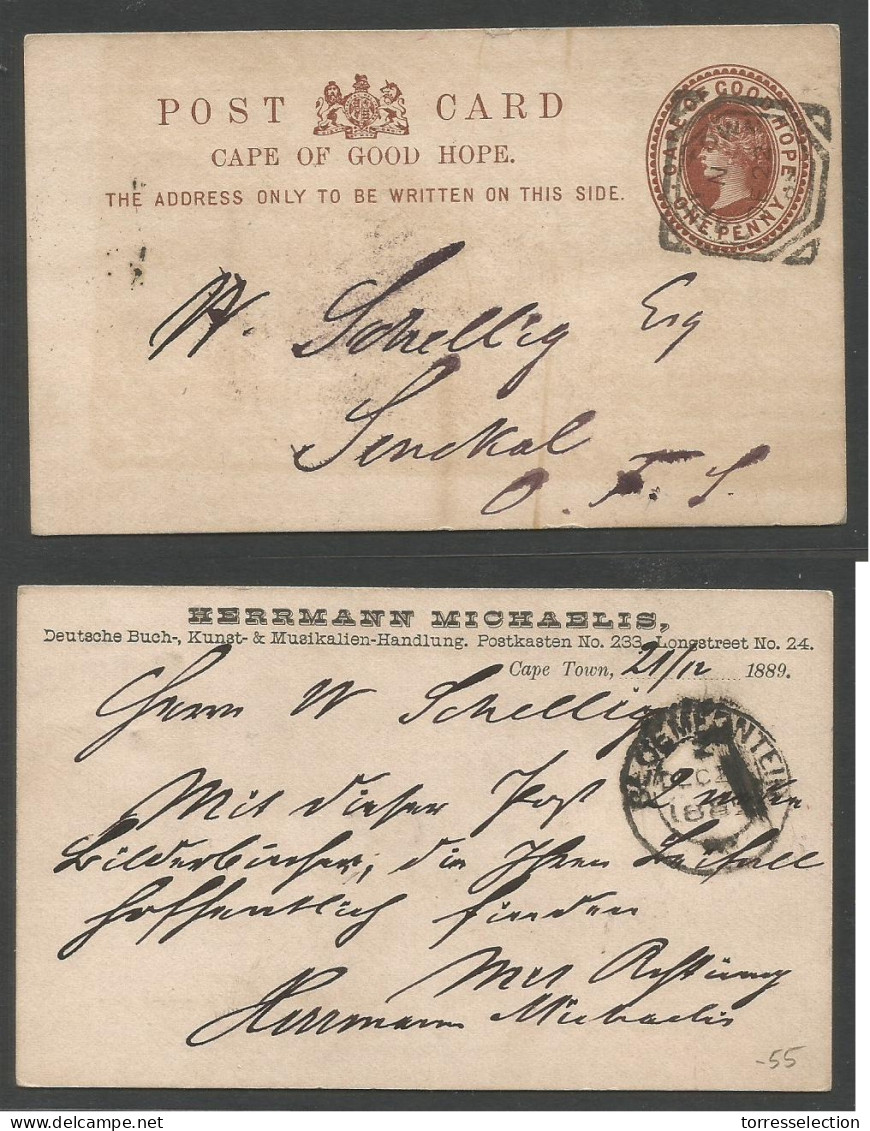 POST CARD
CAPE OF GOOD HOPE.
THE ADDRESS ONLY TO BE WRITTEN ON THIS SIDE.
CAPE OF GOOD HOPE
ONE PENNY
W. Schellig Esq
Senekal
O. F. S.
HERRMANN MICHAELIS,
Deutsche Buch-, Kunst- & Musikalien-Handlung. Postkasten No. 233, Longstreet No. 24.
Cape Town, 21/12 1889.
Herrn W Schellig
BLOEMFONTEIN
DEC
Mit dieser Post 2 neue
Bilderbücher, die Ihren Beifall
hoffentlich finden
Mit Achtung
Herrmann Michaelis
-55
torresselection